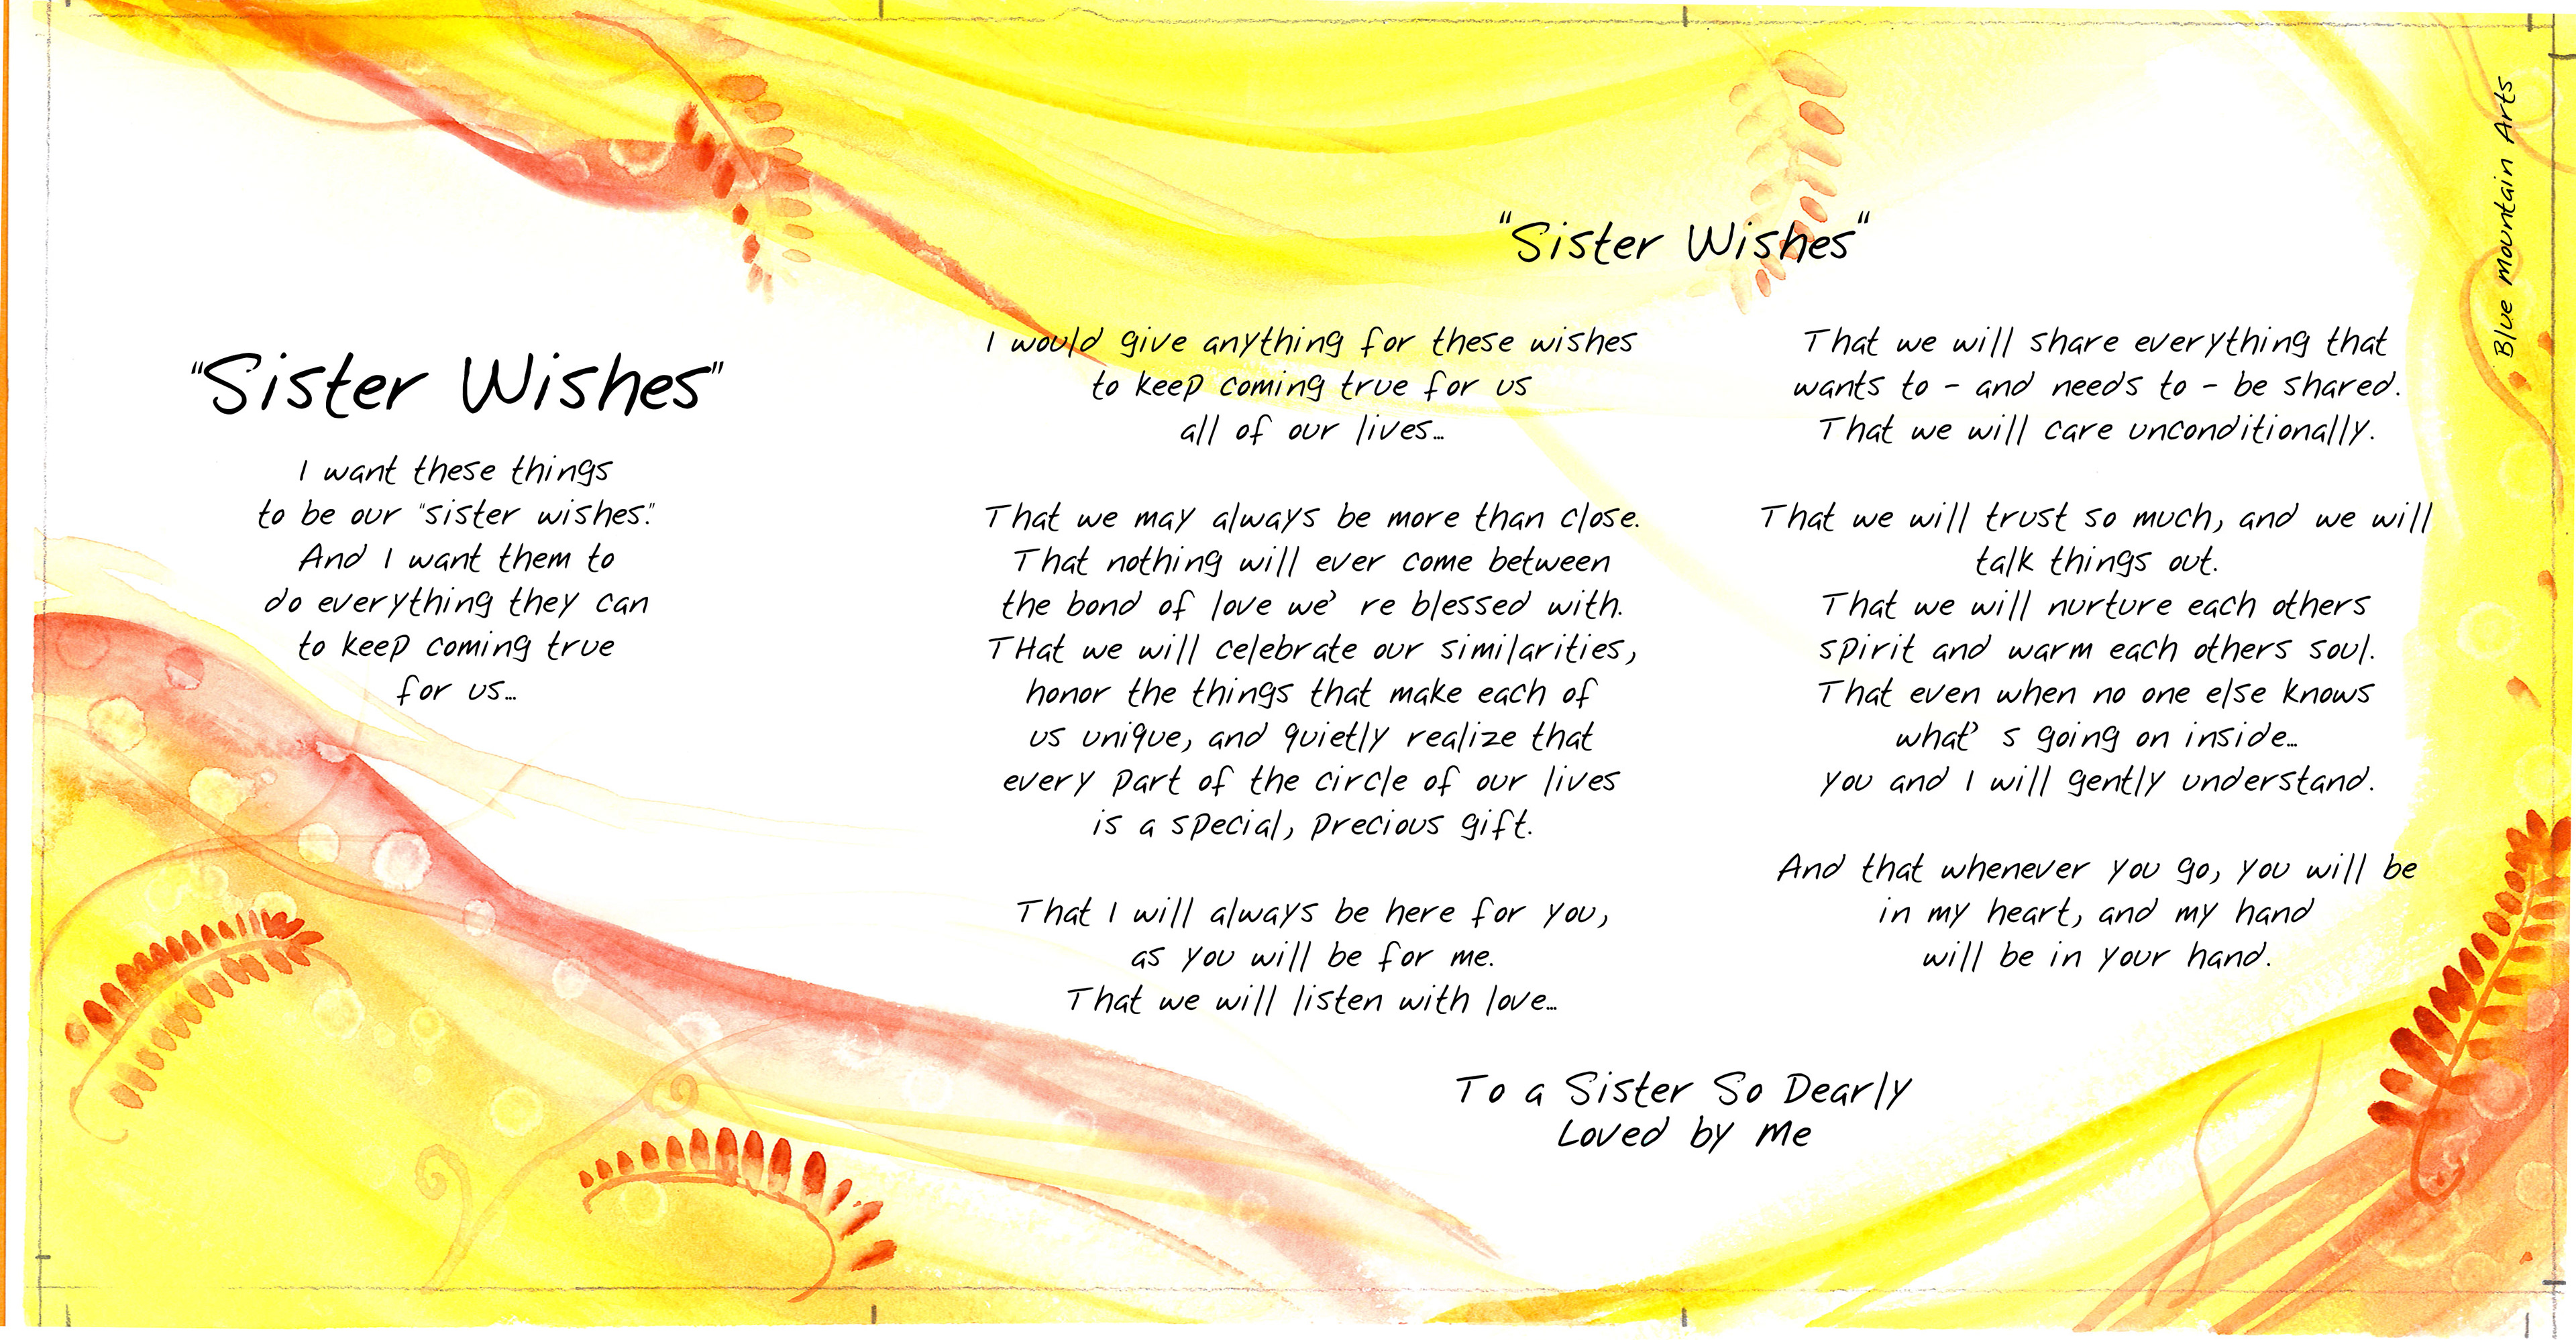 "Sister Wishes"
I want these things
to be our "sister wishes."
And I want them to
do everything they can
to keep coming true
for us...
"Sister Wishes"
I would give anything for these wishes
to keep coming true for us
all of our lives...
That we may always be more than close.
That nothing will ever come between
the bond of love we' re blessed with.
THat we will celebrate our similarities,
honor the things that make each of
us unique, and quietly realize that
every part of the circle of our lives
is a special, precious gift.
That I will always be here for you,
as you will be for me.
That we will listen with love...
That we will share everything that
wants to - and needs to - be shared.
That we will care unconditionally.
That we will trust so much, and we will
talk things out.
That we will nurture each others
spirit and warm each others soul.
That even when no one else knows
what' s going on inside...
you and I will gently understand.
And that whenever you go, you will be
in my heart, and my hand
will be in your hand.
To a Sister So Dearly
Loved by Me
Blue Mountain Arts